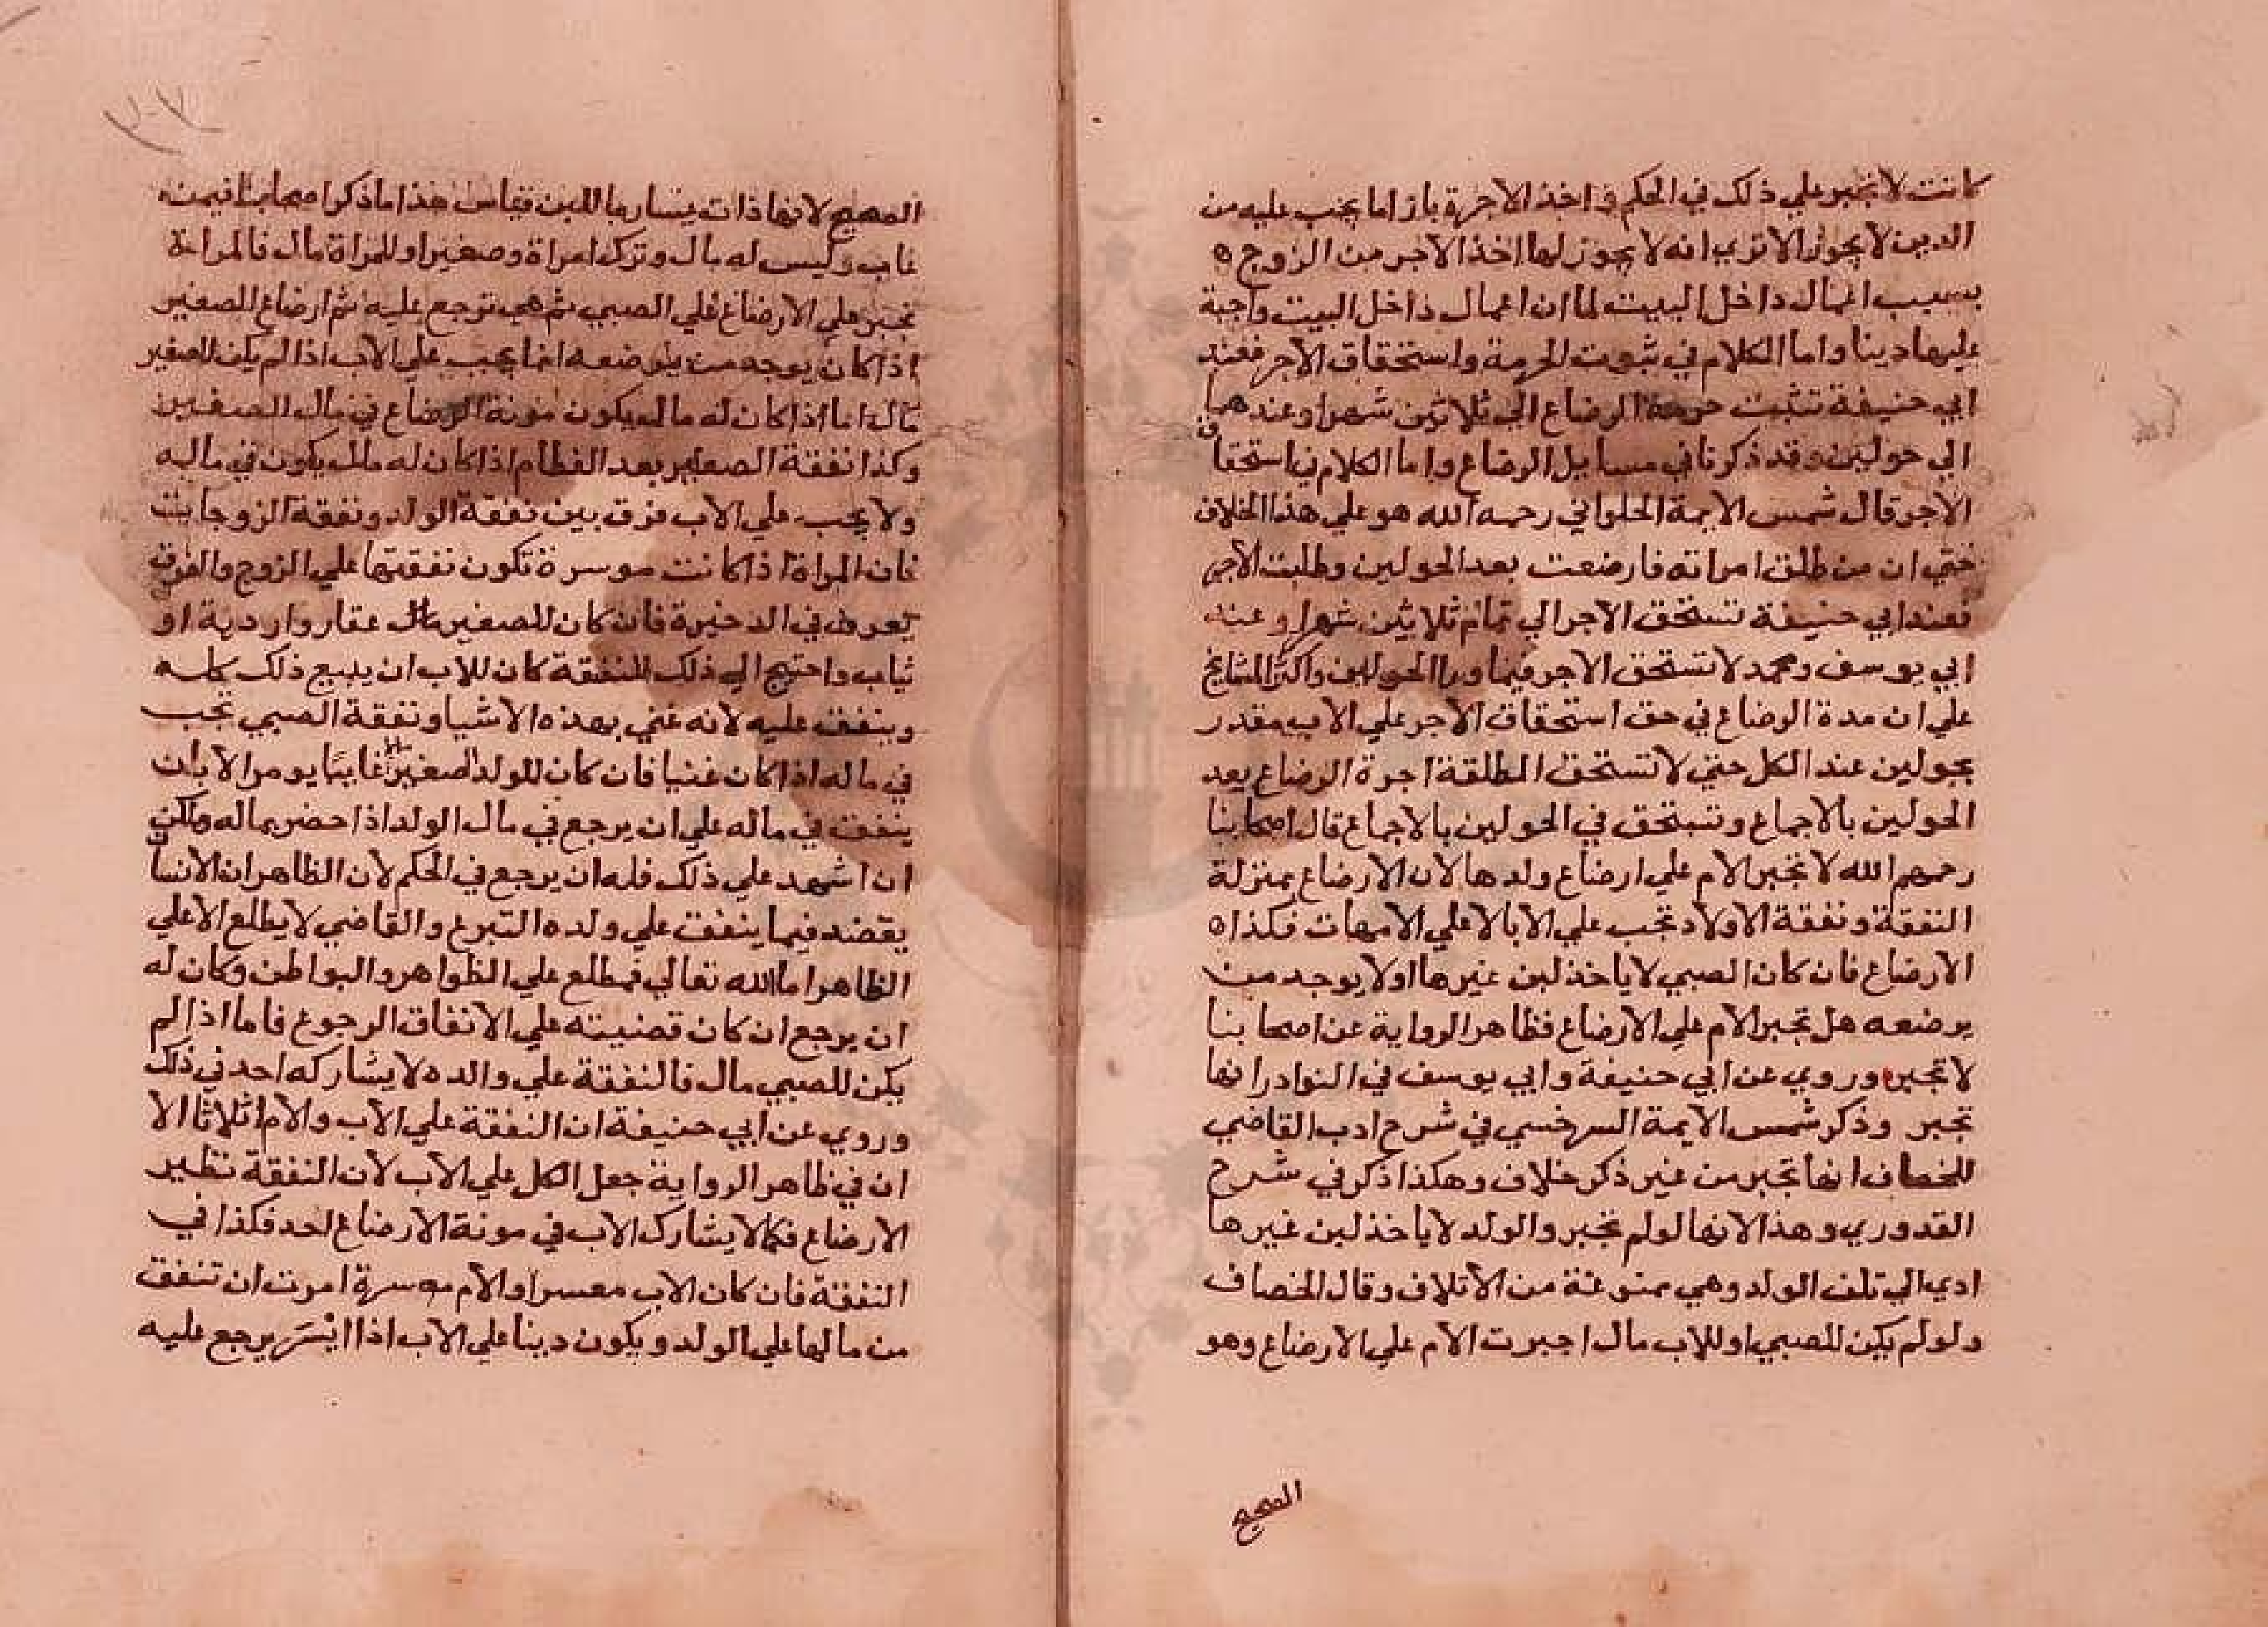 كانت لا تجبر علي ذلك في الحكم فاخذ الاجرة بازاما يجب عليه من
الدين لا يجوز الا تري انه لا يجوز لها اخذ الاجر من الزوج ه
بسبب اعمال داخل البيت لما ان اعمال داخل البيت واجبة
عليها دينا واما الكلام في ثبوت الحرمة واستحقاق الاجر فعند
ابي حنيفة تثبت حرمة الرضاع الي ثلاثين شهرا وعندهما
الي حولين وقد ذكرنا في مسايل الرضاع واما الكلام في استحقاق
الاجر قال شمس الايمة الحلواني رحمه الله هو علي هذا الخلاف
حتي ان من طلق امراته فارضعت بعد الحولين وطلبت الاجر
فعند ابي حنيفة تستحق الاجر الي تمام ثلاثين شهرا وعند
ابي يوسف ومحمد لا تستحق الاجر فيما ورا الحولين واكثر المشايخ
علي ان مدة الرضاع في حق استحقاق الاجر علي الاب مقدر
بحولين عند الكل حتي لا تستحق المطلقة اجرة الرضاع بعد
الحولين بالاجماع وتستحق في الحولين بالاجماع قال اصحابنا
رحمهم الله لا تجبر الام علي ارضاع ولدها لان الارضاع بمنزلة
النفقة ونفقة الاولاد تجب علي الابا لا علي الامهات فكذا ه
الارضاع فان كان الصبي لا ياخذ لبن غيرها او لا يوجد من
يرضعه هل تجبر الام علي الارضاع فظاهر الرواية عن اصحابنا
لا تجبر وروي عن ابي حنيفة وابي يوسف في النوادر انها
تجبر وذكر شمس الايمة السرخسي في شرح ادب القاضي
للخصاف انها تجبر من غير ذكر خلاف وهكذا ذكر في شرح
القدوري وهذا لانها لو لم تجبر والولد لا ياخذ لبن غيرها
ادي الي تلف الولد وهي ممنوعة من الاتلاف وقال الخصاف
ولو لم يكن للصبي او للاب مال اجبرت الام علي الارضاع وهو
الصحيح
الصحيح لانها ذات يسار باللبن فقاس هذا ما ذكر اصحابنا فيمن
غاب وليس له مال وترك امراة وصغيرا وللمراة مال فالمراة
تجبر علي الارضاع علي الصبي ثم هي ترجع عليه ثم ارضاع الصغير
اذا كان يوجد من يرضعه انما يجب علي الاب اذا لم يكن للصغير
مال اما اذا كان له مال يكون مونة الرضاع في مال الصغير
وكذا نفقة الصغير بعد الفطام اذا كان له مال يكون في ماله
ولا يجب علي الاب فرق بين نفقة الولد ونفقة الزوجات
فان المراة اذا كانت موسرة تكون نفقتها علي الزوج والفرق
يعرف في الدخيرة فان كان للصغير مال عقار واردية او
ثياب واحتيج الي ذلك للنفقة كان للاب ان يبيع ذلك كله
وينفق عليه لانه غني بهذه الاشيا ونفقة الصبي تجب
في ماله اذا كان غنيا فان كان للولد الصغير مال غايبا يومر الاب ان
ينفق في ماله علي ان يرجع في مال الولد اذا حضر بماله ولكن
ان اشهد علي ذلك فله ان يرجع في الحكم لان الظاهر ان الانسان
يقصد فيما ينفق علي ولده التبرع والقاضي لا يطلع الا علي
الظاهر اما الله تعالي فمطلع علي الظواهر والبواطن وكان له
ان يرجع ان كان قصنيته علي الانفاق الرجوع فاما اذا لم
يكن للصبي مال فالنفقة علي والده لا يشاركه احد في ذلك
وروي عن ابي حنيفة ان النفقة علي الاب والام اثلاثا الا
ان في ظاهر الرواية جعل الكل علي الاب لان النفقة نظير
الارضاع فكما لا يشارك الاب في مونة الارضاع احد فكذا في
النفقة فان كان الاب معسرا والام موسرة امرت ان تنفق
من مالها علي الولد ويكون دينا علي الاب اذا ايسر يرجع عليه